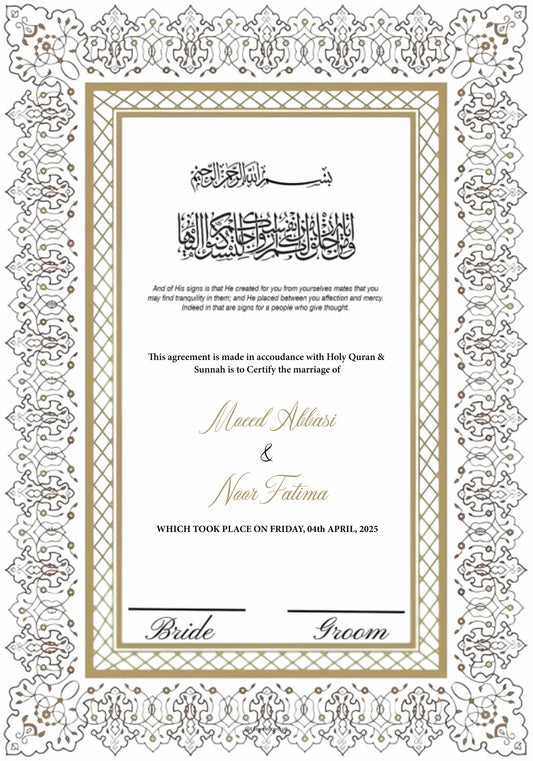 بسم الله الرحمن الرحيم
And of His signs is that He created for you from yourselves mates that you
may find tranquility in them; and He placed between you affection and mercy.
Indeed in that are signs for a people who give thought.
This agreement is made in accoudance with Holy Quran &
Sunnah is to Certify the marriage of
Moeed Abbasi
&
Noor Fatima
WHICH TOOK PLACE ON FRIDAY, 04th APRIL, 2025
Bride Groom